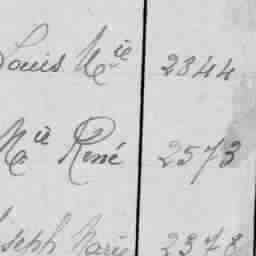 Louis Mie 2344
Mie René 2573
Joseph Marie 2378